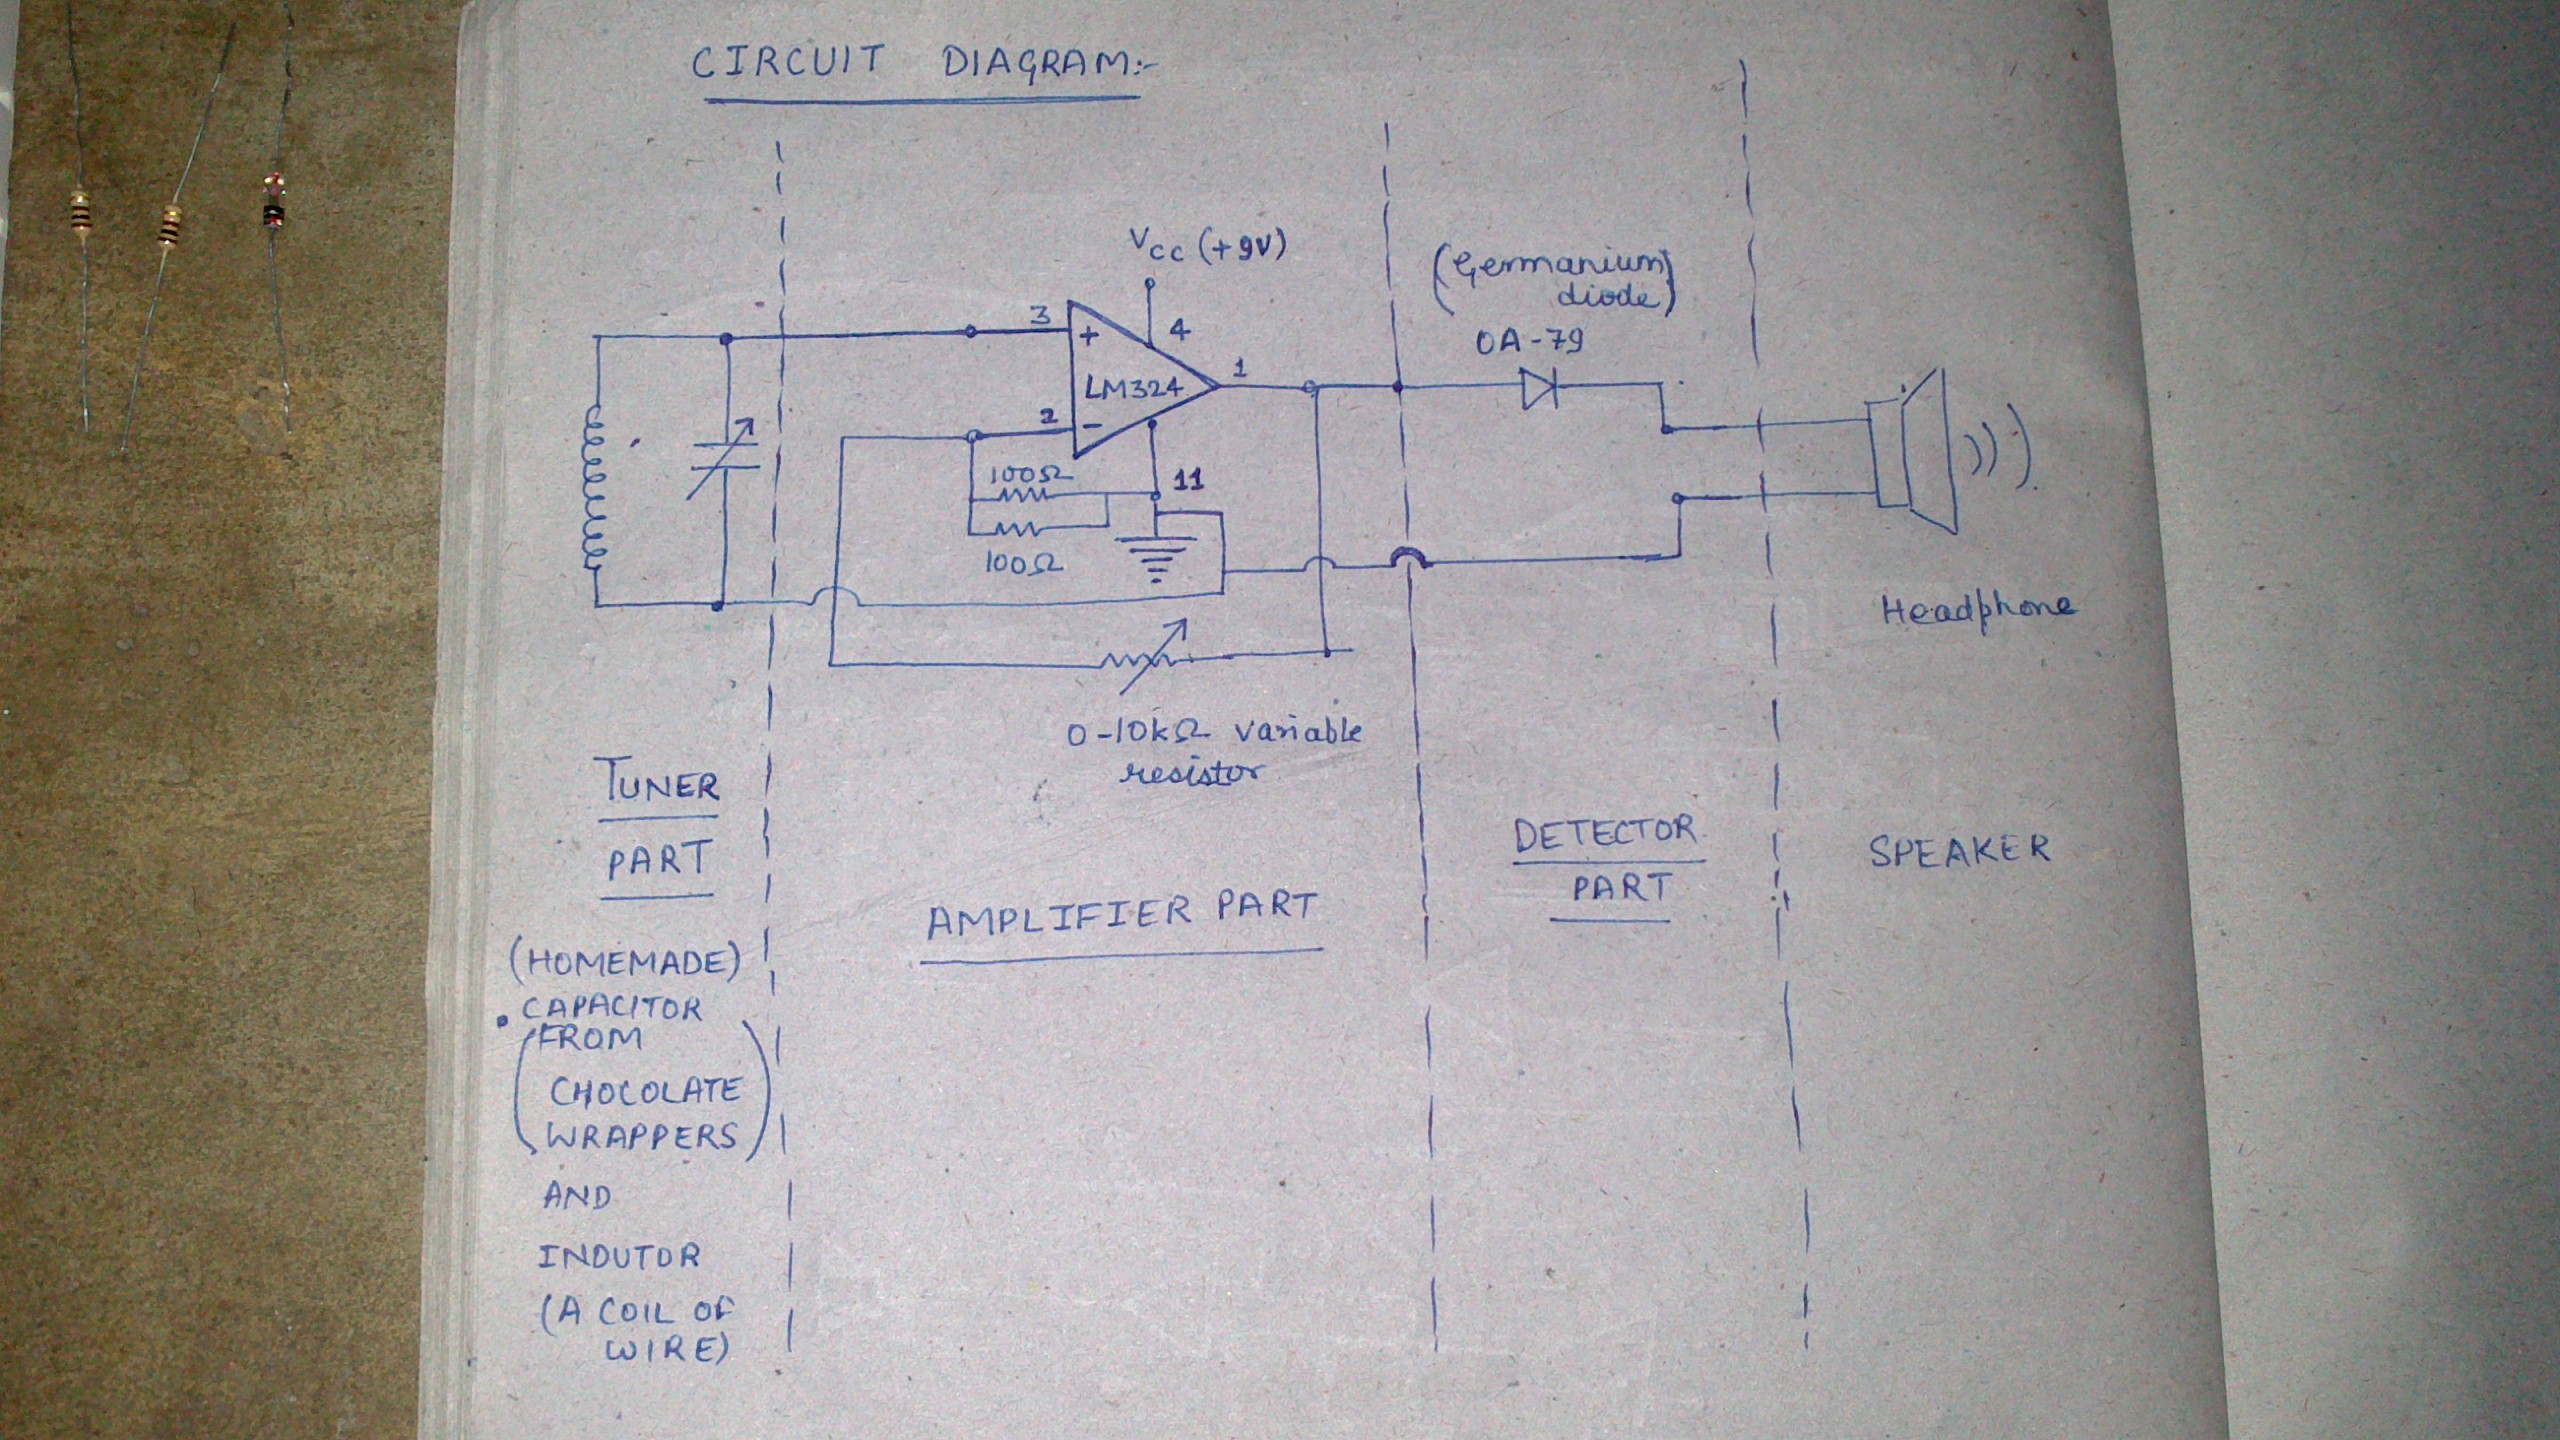 CIRCUIT DIAGRAM:-
Vcc (+9V)
(Germanium
diode)
OA-79
3
+
4
LM324
1
2
-
100Ω
11
100Ω
Headphone
0-10kΩ variable
resistor
TUNER
PART
DETECTOR
PART
SPEAKER
AMPLIFIER PART
(HOMEMADE)
• CAPACITOR
(FROM
CHOCOLATE
WRAPPERS)
AND
INDUTOR
(A COIL OF
WIRE)